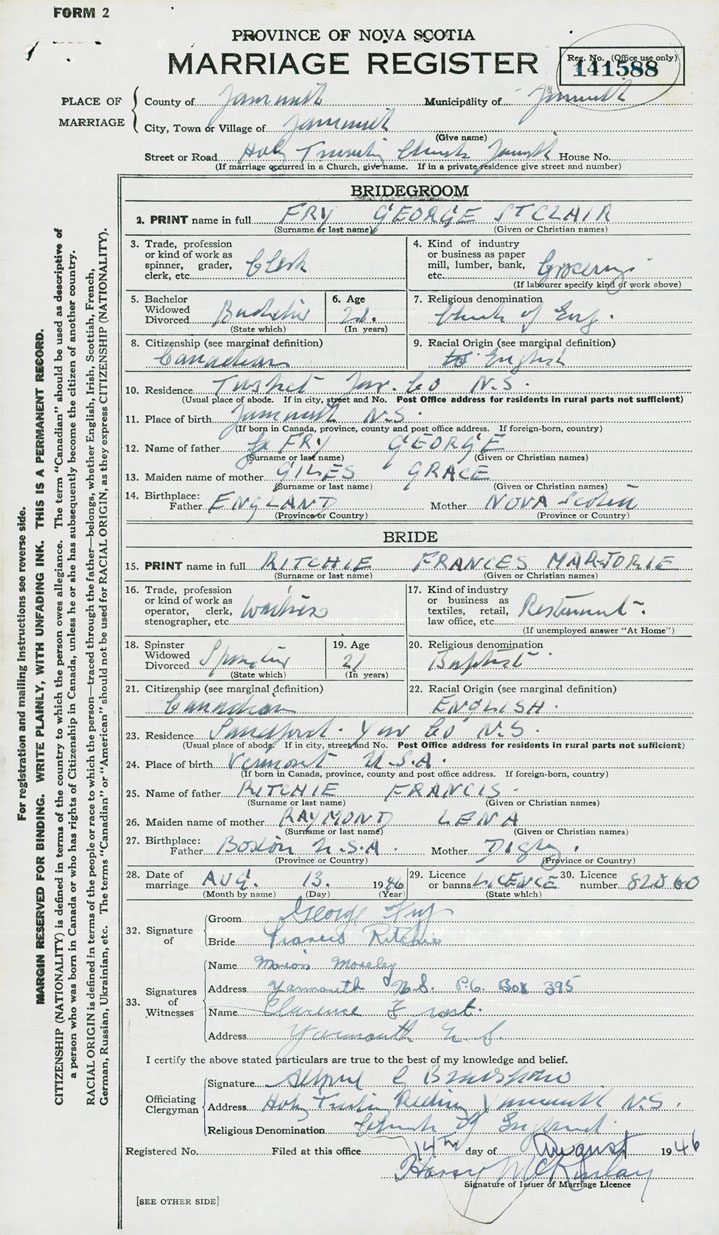 FORM 2
PROVINCE OF NOVA SCOTIA
MARRIAGE REGISTER
Reg. No. (Office use only)
141588
PLACE OF MARRIAGE
County of Yarmouth Municipality of Yarmouth
City, Town or Village of Yarmouth
(Give name)
Street or Road Holy Trinity Church Yarmouth House No.
(If marriage occurred in a Church, give name. If in a private residence give street and number)
BRIDEGROOM
2. PRINT name in full FRY GEORGE ST CLAIR
(Surname or last name) (Given or Christian names)
3. Trade, profession or kind of work as spinner, grader, clerk, etc. Clerk
4. Kind of industry or business as paper mill, lumber, bank, etc. Groceries
(If labourer specify kind of work above)
5. Bachelor Widowed Divorced Bachelor
(State which)
6. Age
(In years)
7. Religious denomination Church of Eng.
8. Citizenship (see marginal definition) Canadian
9. Racial Origin (see marginal definition) English
10. Residence Tusket Yar. Co N.S.
(Usual place of abode. If in city, street and No. Post Office address for residents in rural parts not sufficient)
11. Place of birth Yarmouth N.S.
(If born in Canada, province, county and post office address. If foreign-born, country)
12. Name of father FRY GEORGE
(Surname or last name) (Given or Christian names)
13. Maiden name of mother GILES GRACE
(Surname or last name) (Given or Christian names)
14. Birthplace: Father ENGLAND Mother NOVA Scotia
(Province or Country) (Province or Country)
BRIDE
15. PRINT name in full RITCHIE FRANCES MARJORIE
(Surname or last name) (Given or Christian names)
16. Trade, profession or kind of work as operator, clerk, stenographer, etc. Waitress
17. Kind of industry or business as textiles, retail, law office, etc. Restaurant.
(If unemployed answer "At Home")
18. Spinster Widowed Divorced Spinster
(State which)
19. Age 21
(In years)
20. Religious denomination Baptist
21. Citizenship (see marginal definition) Canadian
22. Racial Origin (see marginal definition) ENGLISH.
23. Residence Sandford. Yar Co N.S.
(Usual place of abode. If in city, street and No. Post Office address for residents in rural parts not sufficient)
24. Place of birth Vermont U.S.A.
(If born in Canada, province, county and post office address. If foreign-born, country)
25. Name of father RITCHIE FRANCIS.
(Surname or last name) (Given or Christian names)
26. Maiden name of mother RAYMOND LENA
(Surname or last name) (Given or Christian names)
27. Birthplace: Father Boston U.S.A. Mother Digby.
(Province or Country) (Province or Country)
28. Date of marriage AUG. 13. 1946
(Month by name) (Day) (Year)
29. Licence or banns LICENCE
(State which)
30. Licence number 82060
32. Signature of
Groom George Fry
Bride Frances Ritchie
33. Signatures of Witnesses
Name Marion Moseley
Address Yarmouth N.S. P.O. Box 395
Name Clarence Frost.
Address Yarmouth N.S.
I certify the above stated particulars are true to the best of my knowledge and belief.
Officiating Clergyman
Signature
Address Holy Trinity Rectory Yarmouth N.S.
Religious Denomination Church of England.
Registered No. Filed at this office 14th day of August 1946
Harry McKinlay
Signature of Issuer of Marriage Licence
[SEE OTHER SIDE]
For registration and mailing instructions see reverse side.
MARGIN RESERVED FOR BINDING. WRITE PLAINLY, WITH UNFADING INK. THIS IS A PERMANENT RECORD.
CITIZENSHIP (NATIONALITY) is defined in terms of the country to which the person owes allegiance. The term "Canadian" should be used as descriptive of
a person who was born in Canada or who has rights of Citizenship in Canada, unless he or she has subsequently become the citizen of another country.
RACIAL ORIGIN is defined in terms of the people or race to which the person—traced through the father—belongs, whether English, Irish, Scottish, French,
German, Russian, Ukrainian, etc. The terms "Canadian" or "American" should not be used for RACIAL ORIGIN, as they express CITIZENSHIP (NATIONALITY).